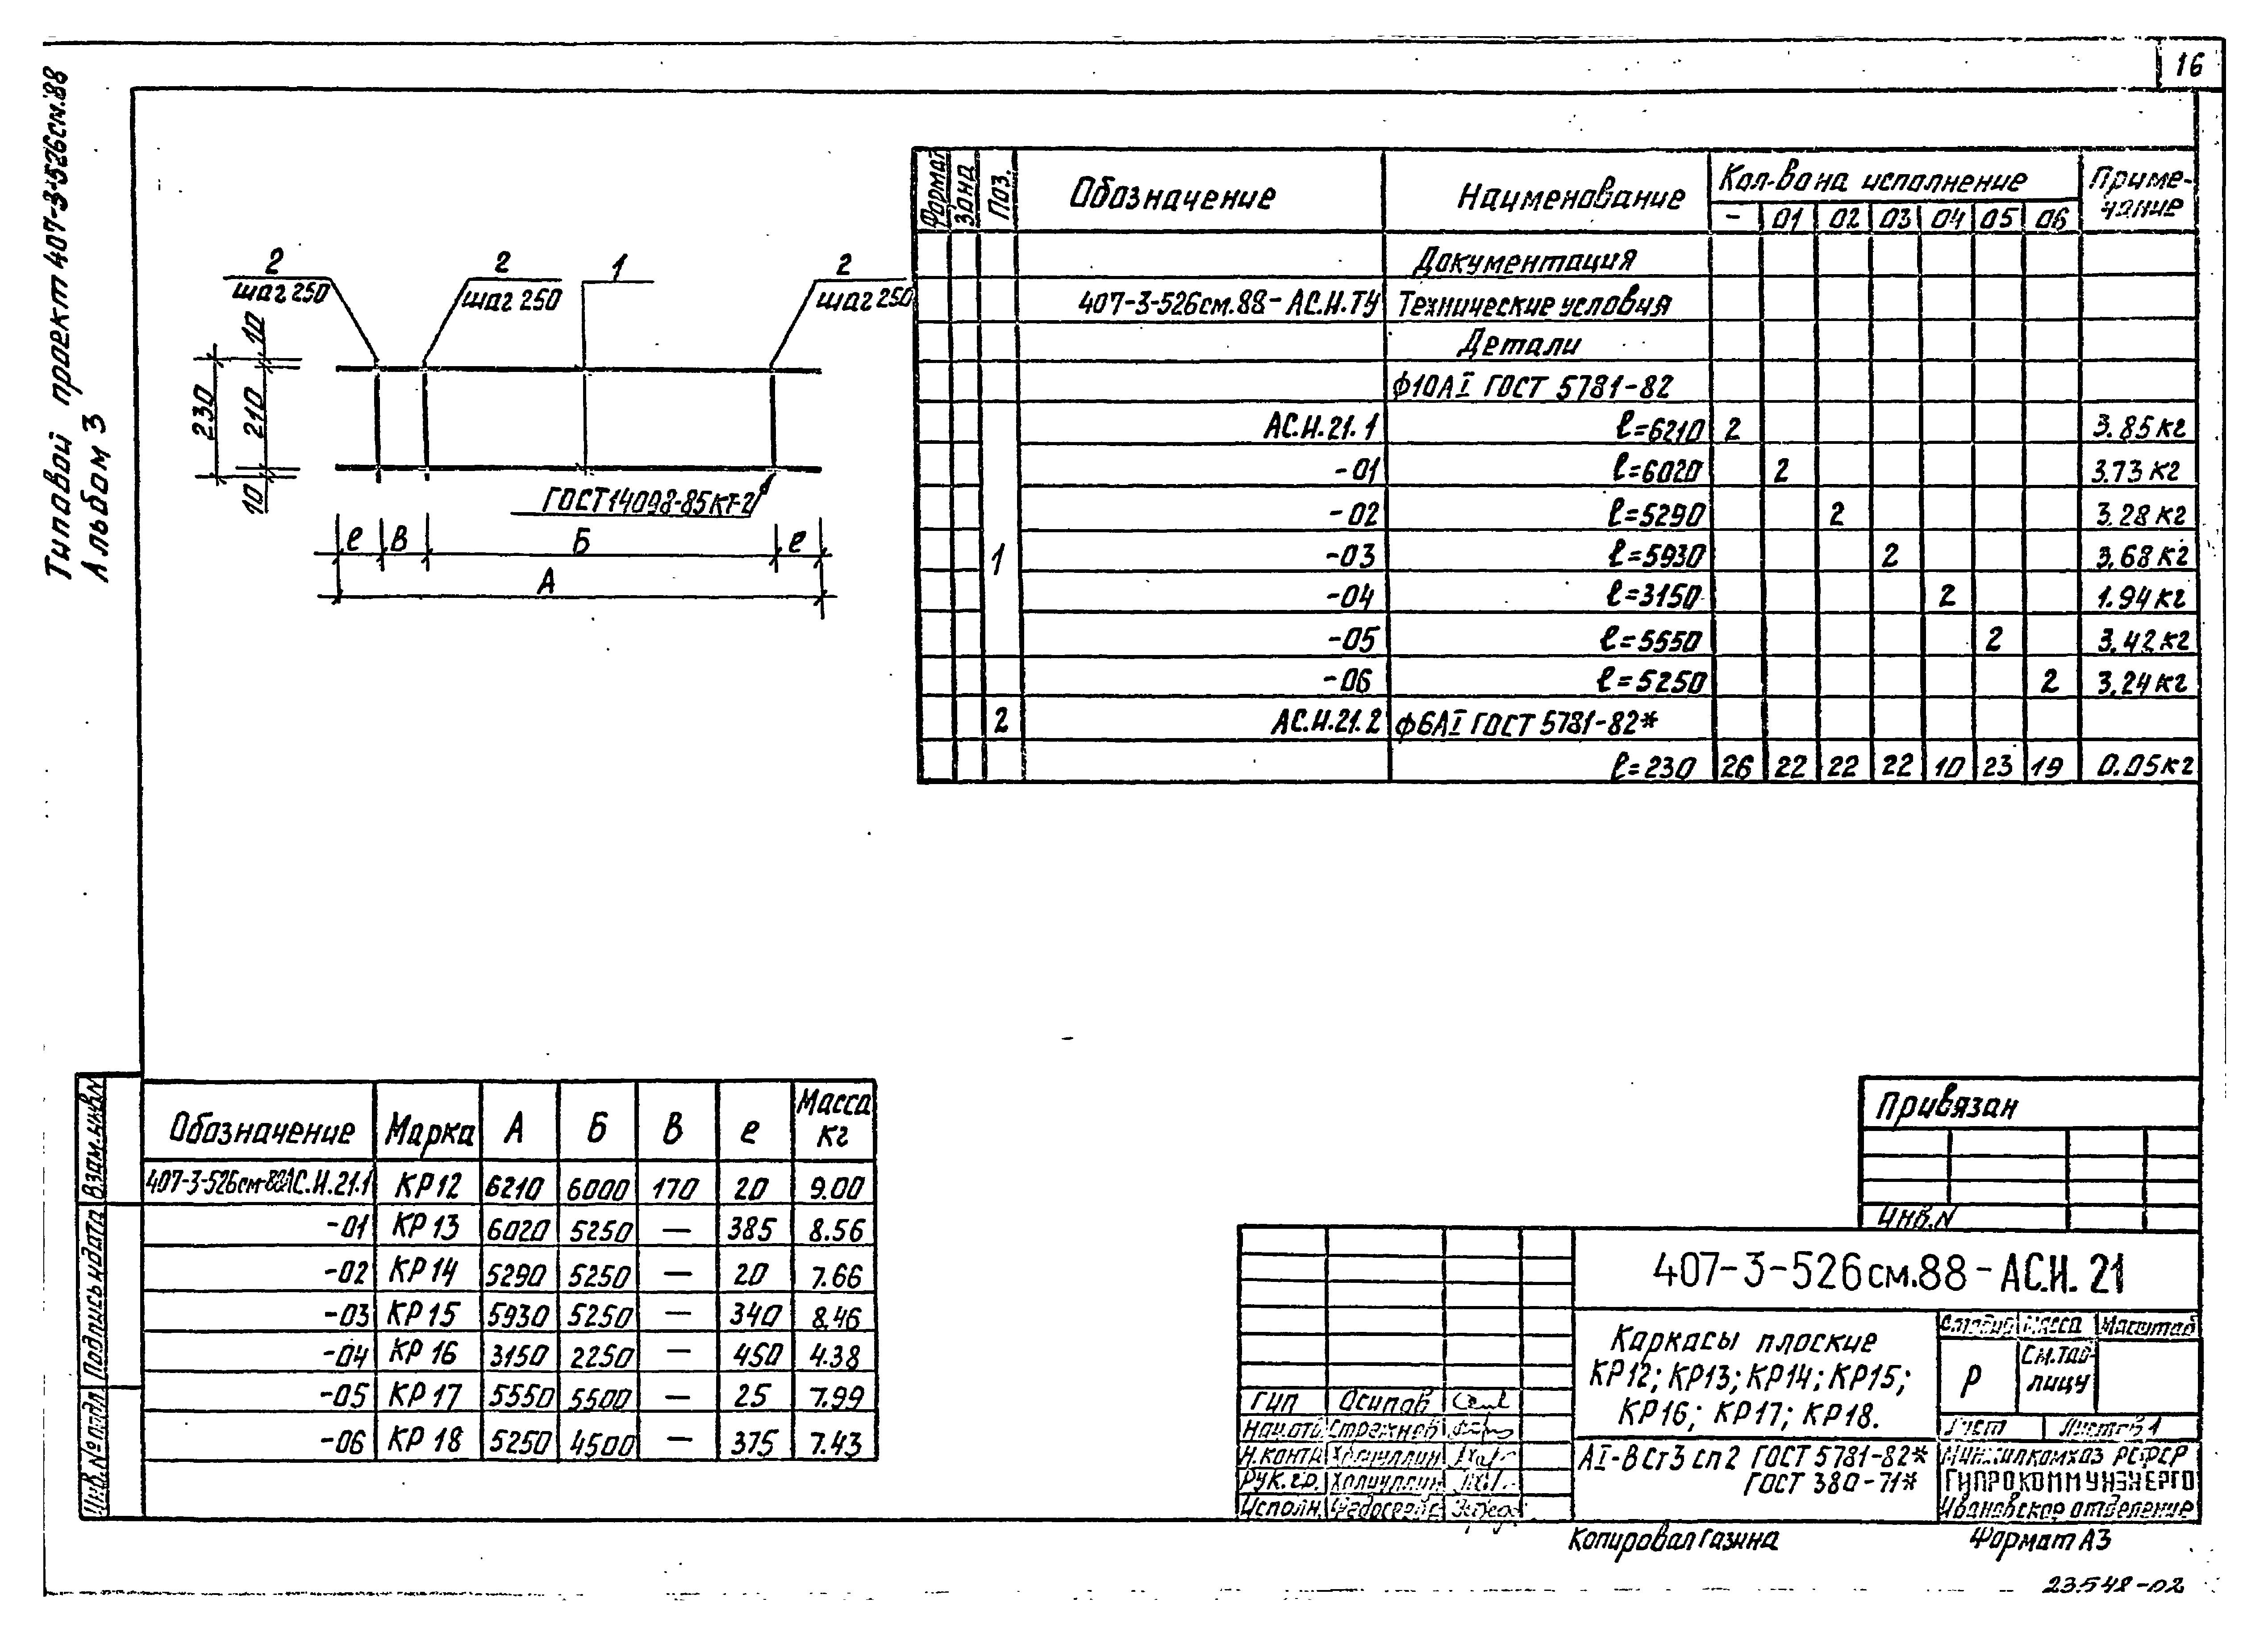 16
Типовой проект 407-3-526см.88
Альбом 3
2
шаг 250
2
шаг 250
1
2
шаг 250
10
230
210
10
ГОСТ14098-85 Кт-2
е
В
Б
е
А
Формат Зона Поз. Обозначение Наименование Кол-во на исполнение Приме-
чание
- 01 02 03 04 05 06
Документация
407-3-526см.88-АС.И.ТУ Технические условия
Детали
ф10АI ГОСТ 5781-82
АС.И.21.1 ℓ=6210 2 3.85кг
-01 ℓ=6020 2 3.73 кг
-02 ℓ=5290 2 3.28 кг
1 -03 ℓ=5930 2 3.68 кг
-04 ℓ=3150 2 1.94 кг
-05 ℓ=5550 2 3.42 кг
-06 ℓ=5250 2 3.24 кг
2 АС.И.21.2 ф6АI ГОСТ 5781-82*
ℓ=230 26 22 22 22 10 23 19 0.05кг
Обозначение Марка А Б В е Масса
кг
407-3-526см-88АС.И.21.1 КР12 6210 6000 170 20 9.00
-01 КР13 6020 5250 — 385 8.56
-02 КР14 5290 5250 — 20 7.66
-03 КР15 5930 5250 — 340 8.46
-04 КР16 3150 2250 — 450 4.38
-05 КР17 5550 5500 — 25 7.99
-06 КР18 5250 4500 — 375 7.43
Взам.инв.N
Подпись и дата
Инв.№ подл.
Привязан
Инв.N
407-3-526см.88-АС.И.21
Каркасы плоские
КР12; КР13; КР14; КР15;
КР16; КР17; КР18.
Стадия Масса Масштаб
Р См.таб-
лицу
Лист Листов 1
ГИП Осипов
Нач.отд. Стрежнев
Н.контр.
Рук.гр.
Исполн.
АI-ВСт3 сп2 ГОСТ 5781-82*
ГОСТ 380-71*
Минжилкомхоз РСФСР
ГИПРОКОММУНЭНЕРГО
Ивановское отделение
Копировал Газина
Формат А3
23548-02